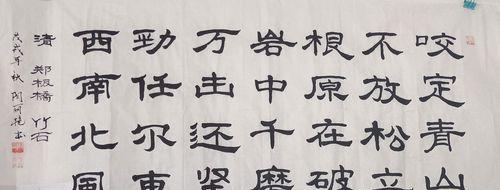 咬定青山
不放松立
根原在破
岩中千磨
万击还坚
勁任尔東
西南北風
清 郑板橋 竹石
戊戌年秋